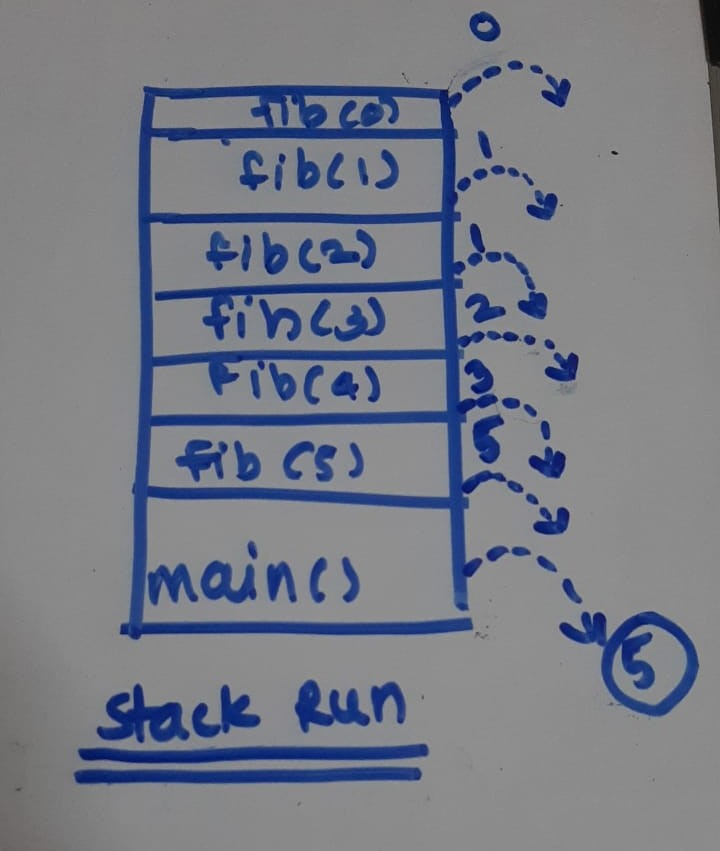 0
fib(0)
1
fib(1)
1
fib(2)
2
fib(3)
3
Fib(4)
5
fib(5)
main()
5
Stack Run